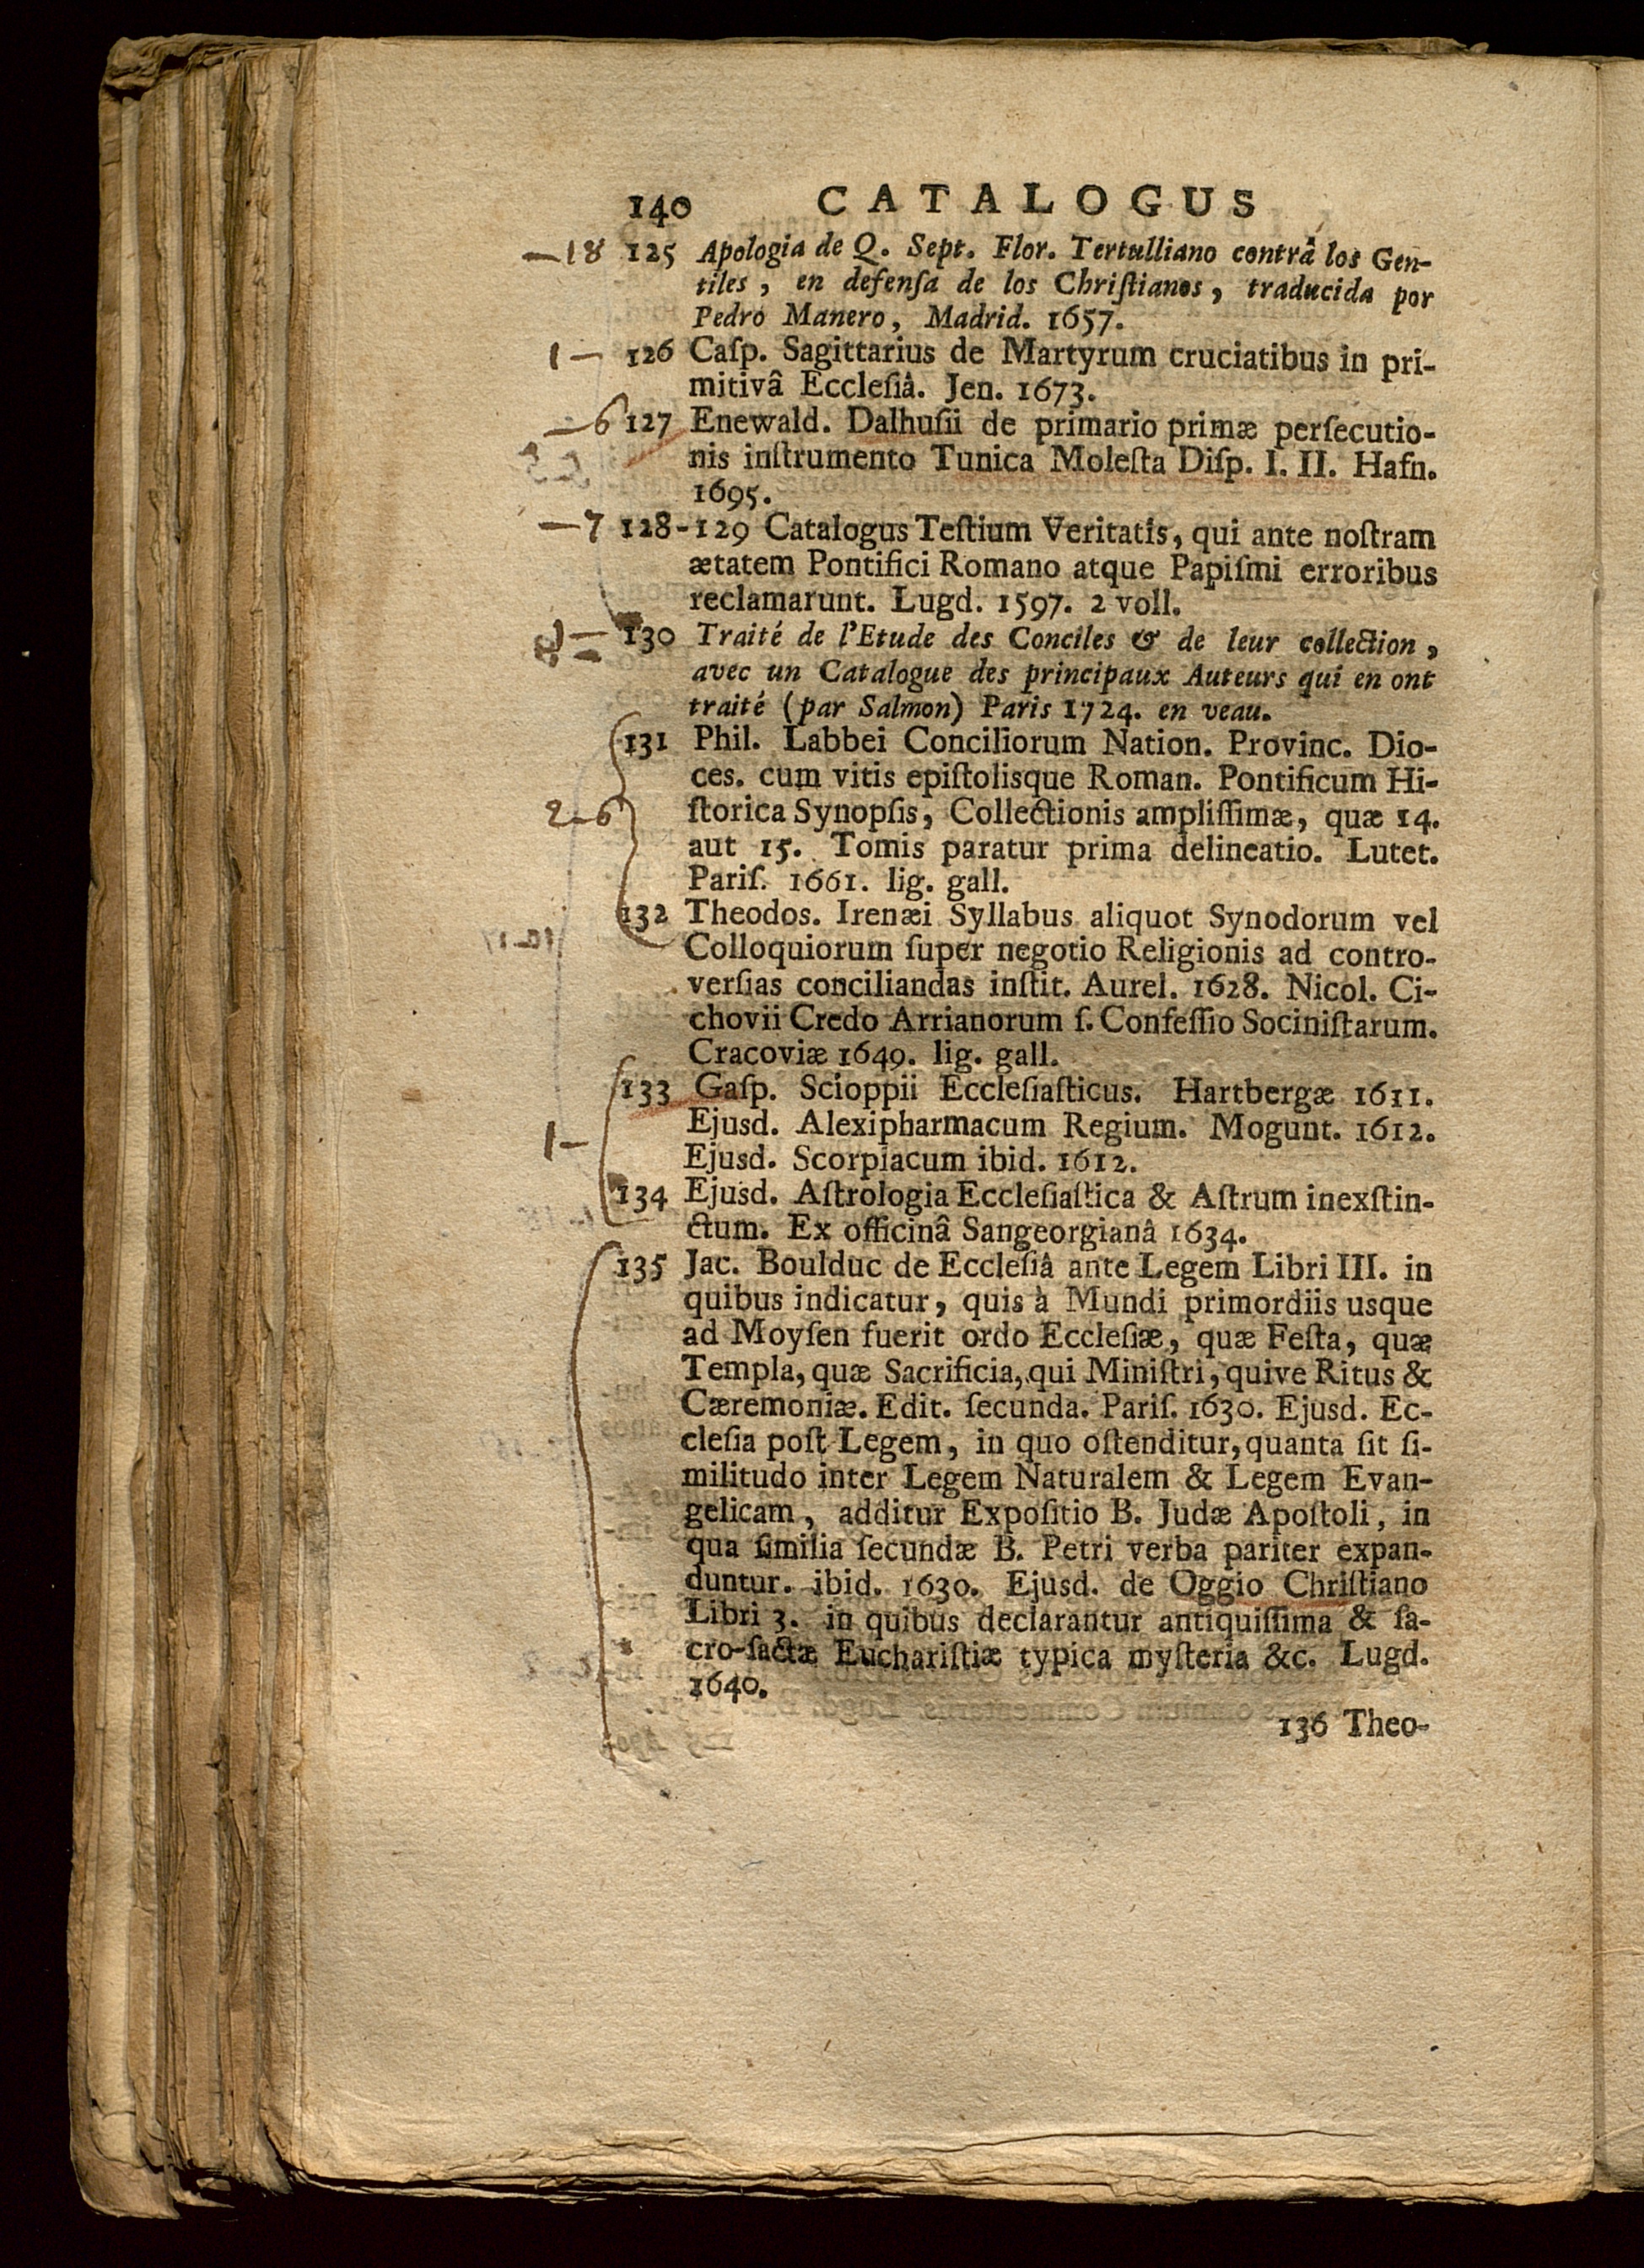 140 CATALOGUS
—18 125 Apologia de Q. Sept. Flor. Tertulliano contrâ los Gen-
tiles, en defenſa de los Chriſtianos, traducida por
Pedro Manero, Madrid. 1657.
1— 126 Caſp. Sagittarius de Martyrum cruciatibus in pri-
mitivâ Eccleſiâ. Jen. 1673.
—6 127 Enewald. Dalhuſii de primario primæ perſecutio-
nis inſtrumento Tunica Moleſta Diſp. I. II. Hafn.
1695.
—7 128-129 Catalogus Teſtium Veritatis, qui ante noſtram
ætatem Pontifici Romano atque Papiſmi erroribus
reclamarunt. Lugd. 1597. 2 voll.
130 Traité de l'Etude des Conciles & de leur collection,
avec un Catalogue des principaux Auteurs qui en ont
traité (par Salmon) Paris 1724. en veau.
131 Phil. Labbei Conciliorum Nation. Provinc. Dio-
ces. cum vitis epiſtolisque Roman. Pontificum Hi-
2-6 ſtorica Synopſis, Collectionis ampliſſimæ, quæ 14.
aut 15. Tomis paratur prima delineatio. Lutet.
Pariſ. 1661. lig. gall.
132 Theodos. Irenæi Syllabus aliquot Synodorum vel
Colloquiorum ſuper negotio Religionis ad contro-
verſias conciliandas inſtit. Aurel. 1628. Nicol. Ci-
chovii Credo Arrianorum ſ. Confeſſio Sociniſtarum.
Cracoviæ 1649. lig. gall.
133 Gaſp. Scioppii Eccleſiaſticus. Hartbergæ 1611.
1— Ejusd. Alexipharmacum Regium. Mogunt. 1612.
Ejusd. Scorpiacum ibid. 1612.
134 Ejusd. Aſtrologia Eccleſiaſtica & Aſtrum inexſtin-
ctum. Ex officinâ Sangeorgianâ 1634.
135 Jac. Boulduc de Eccleſiâ ante Legem Libri III. in
quibus indicatur, quis à Mundi primordiis usque
ad Moyſen fuerit ordo Eccleſiæ, quæ Feſta, quæ
Templa, quæ Sacrificia, qui Miniſtri, quive Ritus &
Cæremoniæ. Edit. ſecunda. Pariſ. 1630. Ejusd. Ec-
cleſia poſt Legem, in quo oſtenditur, quanta ſit ſi-
militudo inter Legem Naturalem & Legem Evan-
gelicam, additur Expoſitio B. Judæ Apoſtoli, in
qua ſimilia ſecundæ B. Petri verba pariter expan-
duntur. ibid. 1630. Ejusd. de Oggio Chriſtiano
Libri 3. in quibus declarantur antiquiſſima & ſa-
cro-ſactæ Euchariſtiæ typica myſteria &c. Lugd.
1640.
136 Theo-